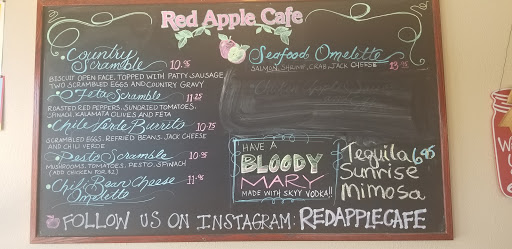 Red Apple Cafe
• Country Scramble 10.95
BISCUIT OPEN FACE, TOPPED WITH PATTY SAUSAGE
TWO SCRAMBLED EGGS AND COUNTRY GRAVY
• Feta Scramble 11.25
ROASTED RED PEPPERS, SUNDRIED TOMATOES,
SPINACH, KALAMATA OLIVES AND FETA
• Chile Verde Burrito 10.75
SCRAMBLED EGGS, REFRIED BEANS, JACK CHEESE
AND CHILI VERDE
• Pesto Scramble 10.95
MUSHROOMS, TOMATOES, PESTO, SPINACH
(ADD CHICKEN FOR $2)
• Chili Bean Cheese
Omelette 11.95
• Seafood Omelette
SALMON, SHRIMP, CRAB, JACK CHEESE 13.95
HAVE A
BLOODY
MARY
MADE WITH SKYY VODKA!!
Tequila 6.95
Sunrise
Mimosa
FOLLOW US ON INSTAGRAM: REDAPPLECAFE